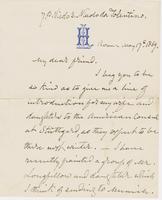 Rome, May 19th 1869.
My dear friend.
I beg you to be
so kind as to give me a line of
introduction for my wife and
daughters to the American Consul
at Stuttgard, as they expect to be
there next winter. — I have
recently painted a group of Mr.
Longfellow and daughter which
I think of sending to Munich